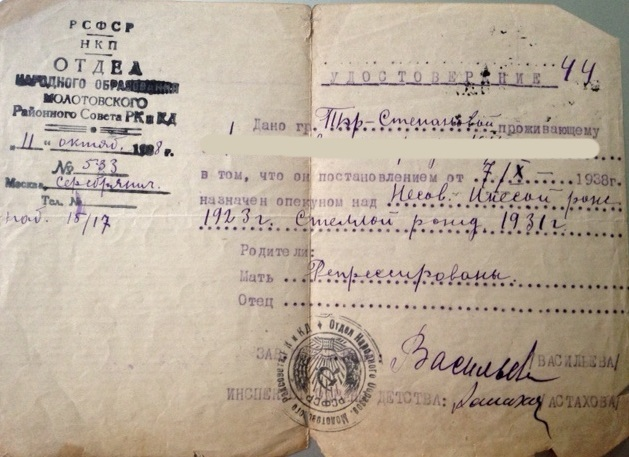 РСФСР
НКП
ОТДЕЛ
НАРОДНОГО ОБРАЗОВАНИЯ
МОЛОТОВСКОГО
Районного Совета РК и КД
"11" октяб. 1938г.
№ 533
Москва, Серебрянич.
Тел. №
наб. 15/17
УДОСТОВЕРЕНИЕ 44
Дано гр. Тер-Степановой проживающему
в том, что он постановлением от 7/X – 1938г.
назначен опекуном над
1923г. Стеллой рожд 1931г
Родители:
Мать Репрессированы.
Отец
ЗАВ Васильев ВАСИЛЬЕВА/
ИНСПЕК ДЕТСТВА: АСТАХОВА/
Отдел Народного Образов. Молотовского Райсовета РК и КД
РСФСР